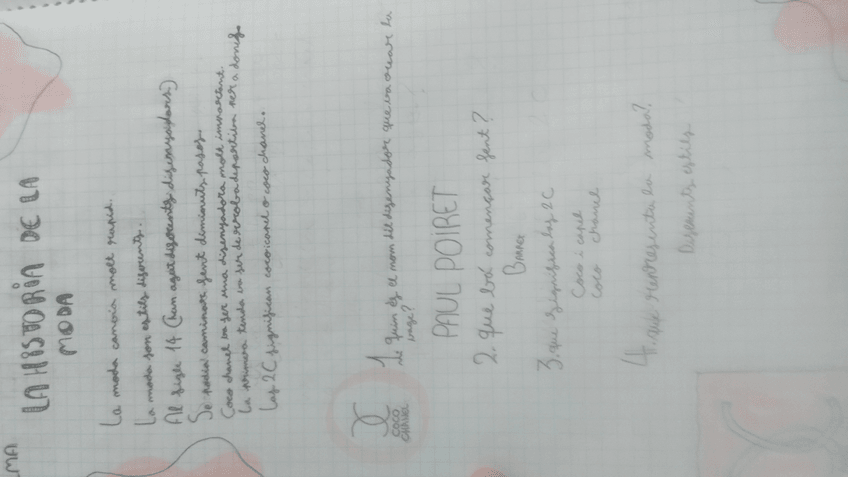 LA HISTORIA DE LA
MODA
La moda canvia molt rapid.
La moda son estils diferents.
Al sigle 14 (han agut diferents disenyadors.)
Se podia caminar fent diminuts pasos.
Coco chanel va ser una disenyadora molt important.
La primera tenda va ser de rroba deportiva per a dones.
Las 2C significan coco cand o coco chanel.
COCO
CHANEL
1. Quin es el nom del disenyador que va crear la
PAUL POIRET
2. que va començar fent?
3. que significa las 2C
Coco i capel
coco chanel
4. que representa la moda?
Diferents estils.